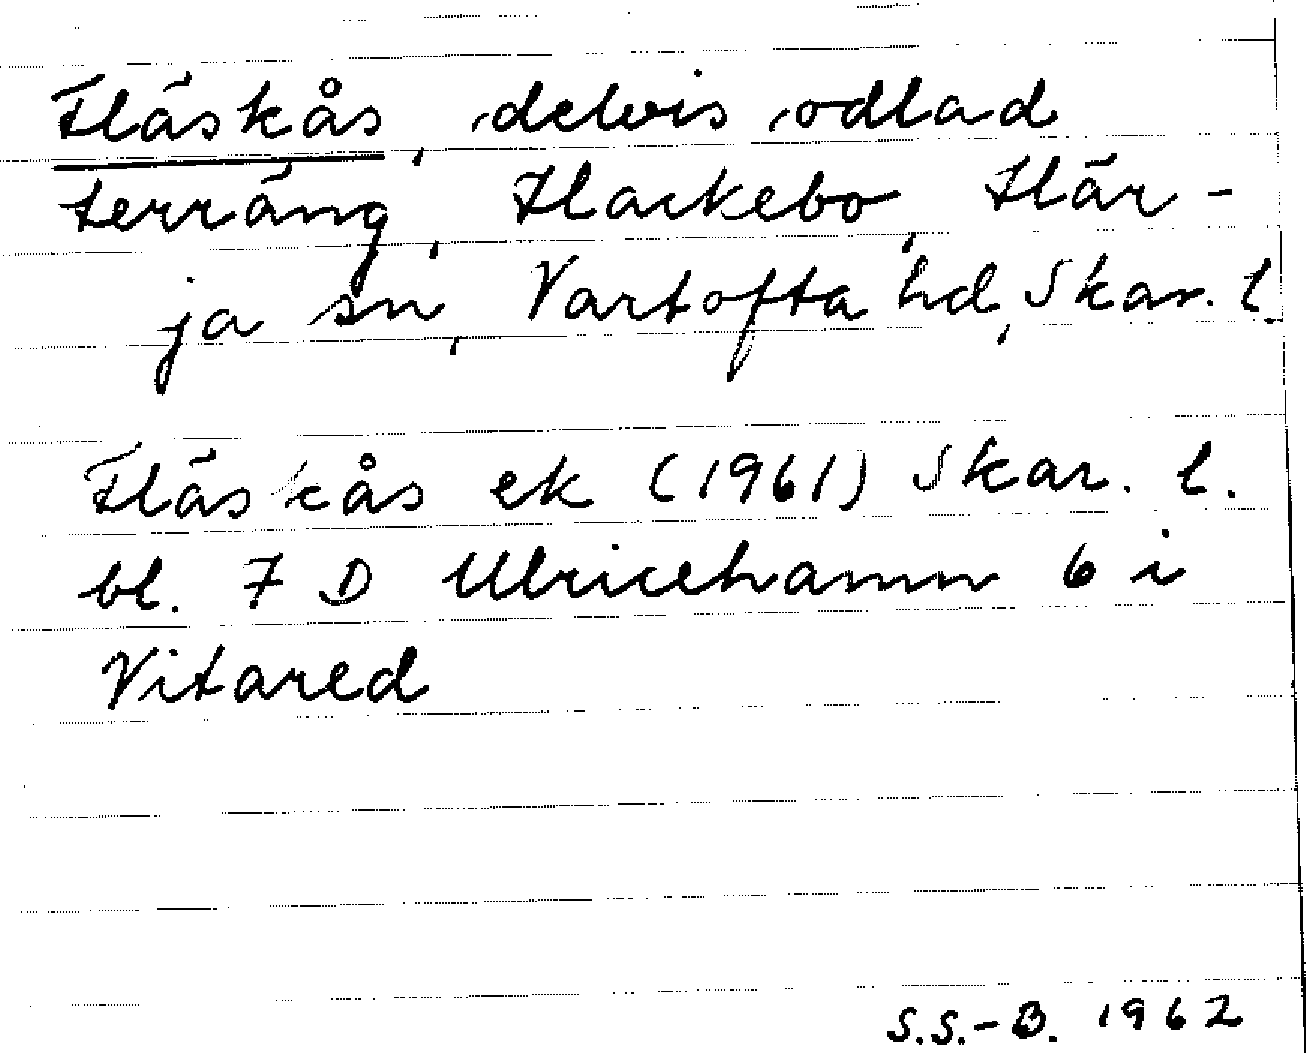 Fläskås, delvis odlad
terräng, Hackebo, Här-
ja sn, Vartofta hd, Skar. l.
Fläskås ek (1961) Skar. l.
bl. 7 D Ulricehamn 6 i
Vitared
S.S.-B. 1962